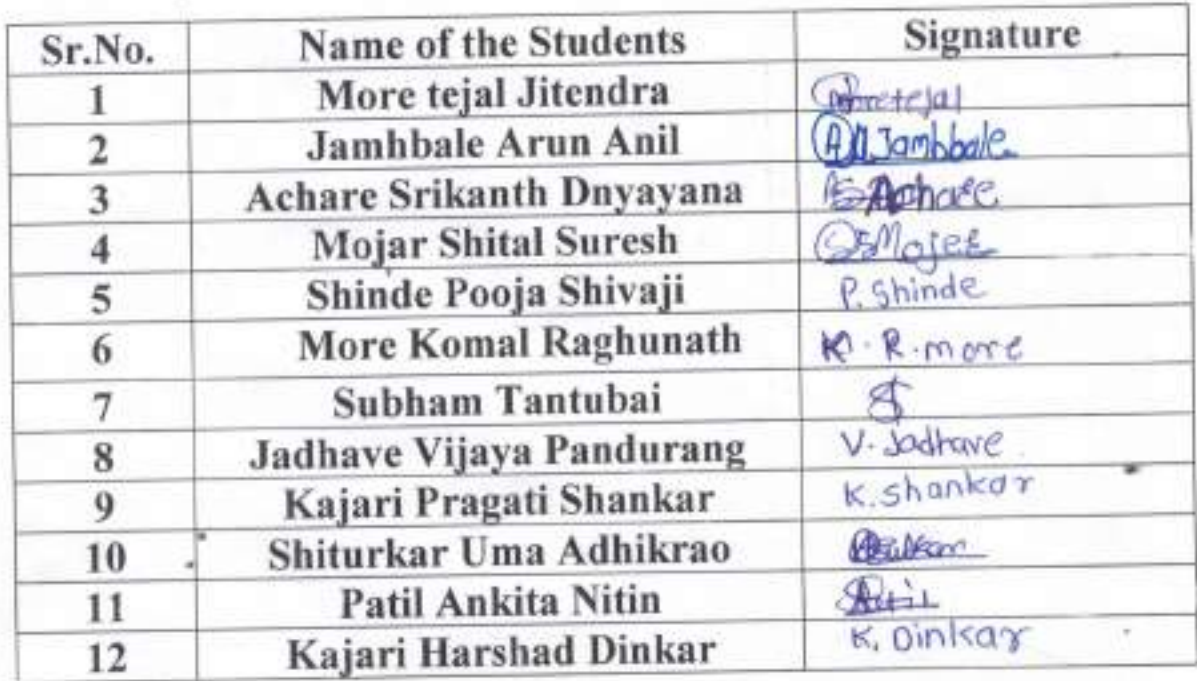 Sr.No. Name of the Students Signature
1 More tejal Jitendra moretejal
2 Jamhbale Arun Anil A.A.Jambbale
3 Achare Srikanth Dnyayana Achare
4 Mojar Shital Suresh
5 Shinde Pooja Shivaji P. Shinde
6 More Komal Raghunath K. R. more
7 Subham Tantubai
8 Jadhave Vijaya Pandurang V. Jadhave
9 Kajari Pragati Shankar K. Shankar
10 Shiturkar Uma Adhikrao
11 Patil Ankita Nitin
12 Kajari Harshad Dinkar K. Dinkar